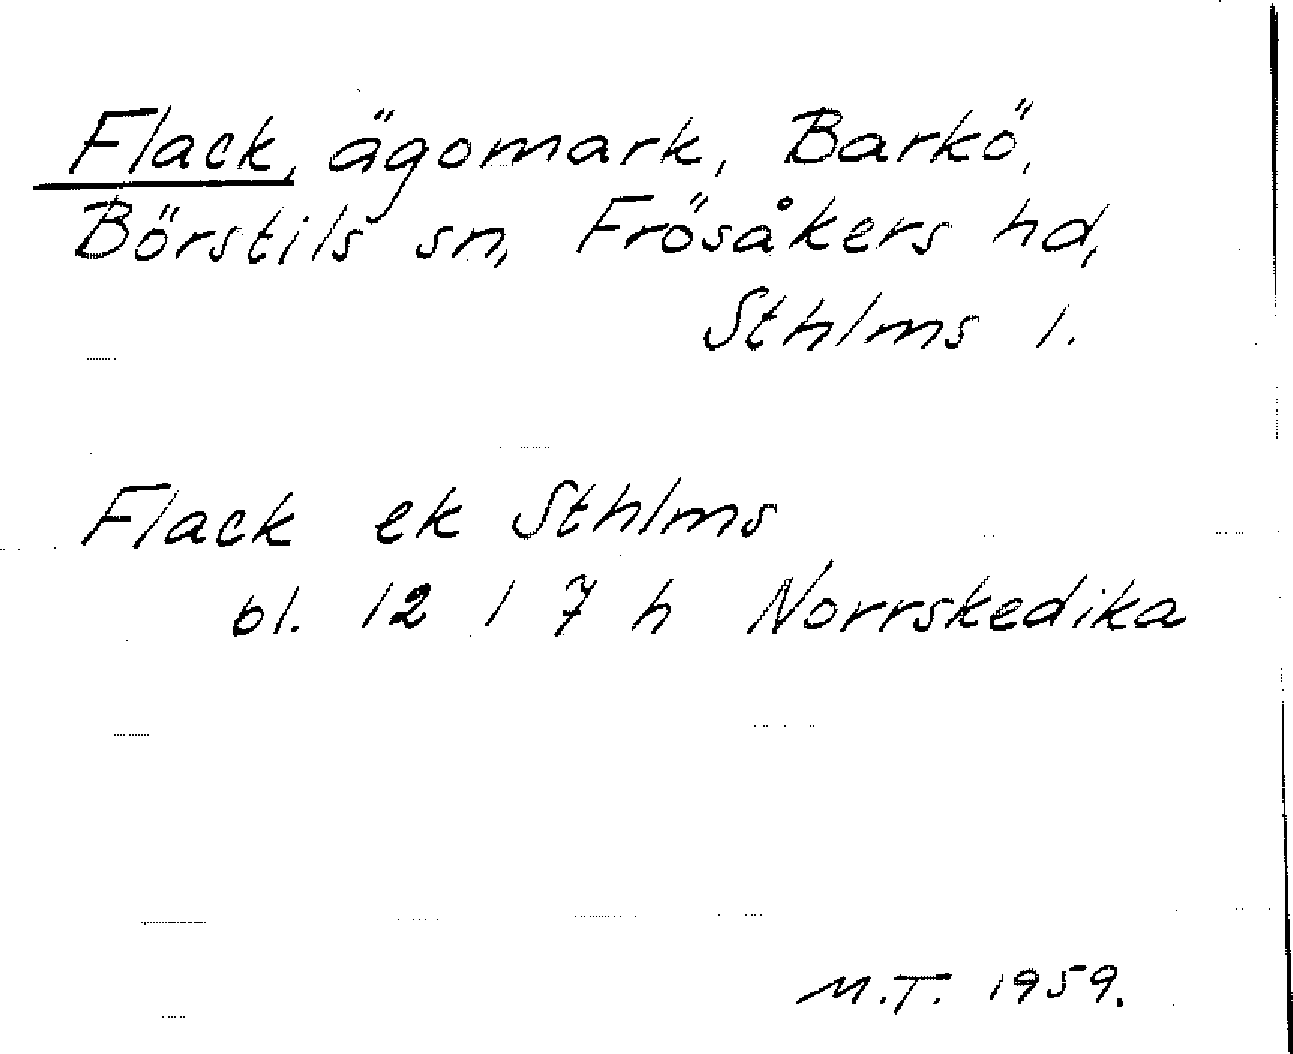 Flack, ägomark, Barkö,
Börstils sn, Frösåkers hd,
Sthlms l.
Flack ek Sthlms
bl. 12 I 7 h Norrskedika
M.T. 1959.